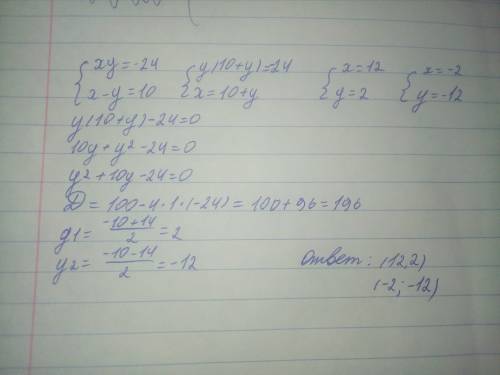 {xy=-24 {y(10+y)=-24 {x=12 {x=-2
{x-y=10 {x=10+y {y=2 {y=-12
y(10+y)-24=0
10y+y²-24=0
y²+10y-24=0
D=100-4·1·(-24)=100+96=196
y1=(-10+14)/2=2
y2=(-10-14)/2=-12
Ответ: (12,2)
(-2;-12)